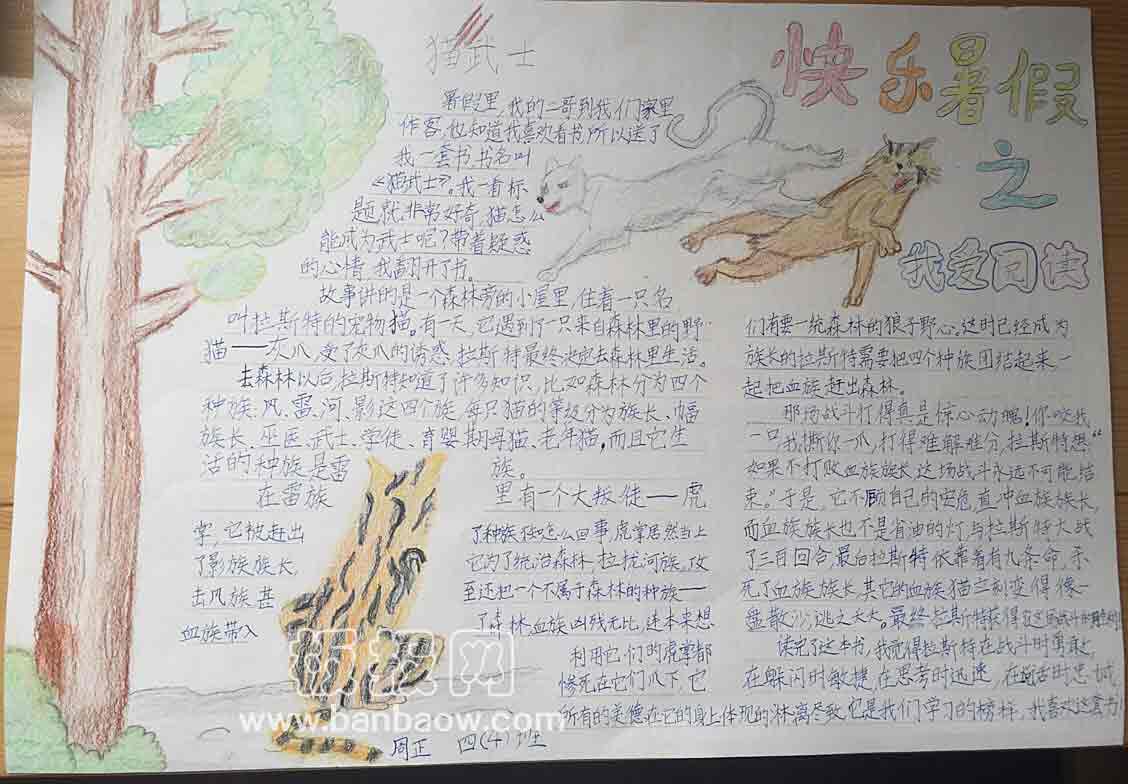 快乐暑假
之
我爱阅读
猫武士
暑假里,我的二哥到我们家里
作客,他知道我喜欢看书,所以送了
我一套书,书名叫
《猫武士》。我一看标
题就非常好奇,猫怎么
能成为武士呢?带着疑惑
的心情,我翻开了书。
故事讲的是一个森林旁的小屋里,住着一只名
叫拉斯特的宠物猫。有一天,它遇到了一只来自森林里的野
猫——灰爪,受了灰爪的诱惑,拉斯特最终决定去森林里生活。
去森林以后,拉斯特知道了许多知识,比如森林分为四个
种族:风、雷、河、影这四个族,每只猫的等级分为族长、副
族长、巫医、武士、学徒、育婴期母猫、老年猫,而且它生
活的种族是雷族。
在雷族里有一个大叛徒——虎
掌,它被赶出了种族,但怎么回事,虎掌居然当上
了影族族长,它为了统治森林,拉拢河族,攻
击风族,甚至还把一个不属于森林的种族——
血族带入了森林,血族凶残无比,连本来想
利用它们的虎掌都
惨死在它们爪下,它
们有要一统森林的狼子野心。这时已经成为
族长的拉斯特需要把四个种族团结起来,一
起把血族赶出森林。
那场战斗打得真是惊心动魄!你咬我
一口,我撕你一爪,打得难解难分,拉斯特想:“
如果不打败血族族长,这场战斗永远不可能结
束。”于是,它不顾自己的安危,直冲血族族长,
而血族族长也不是省油的灯,与拉斯特大战
了三百回合,最后拉斯特依靠着有九条命,杀
死了血族族长,其它的血族猫立刻变得像一
盘散沙,逃之夭夭。最终,拉斯特获得了这场战斗的
读完了这本书,我觉得拉斯特在战斗时勇敢,
在躲闪时敏捷,在思考时迅速,在说话时忠诚
所有的美德在它的身上体现的淋漓尽致,它是我们学习的榜样,我喜欢这套书!
周正 四(4)班
板报网
www.banbaow.com